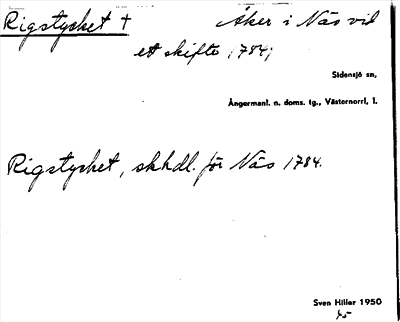 Rigstycket † Åker i Näs vid
ett skifte 1784;
Sidensjö sn,
Ångermanl. n. doms. tg., Västernorrl. l.
Rigstycket, skhdl. för Näs 1784.
Sven Hiller 1950